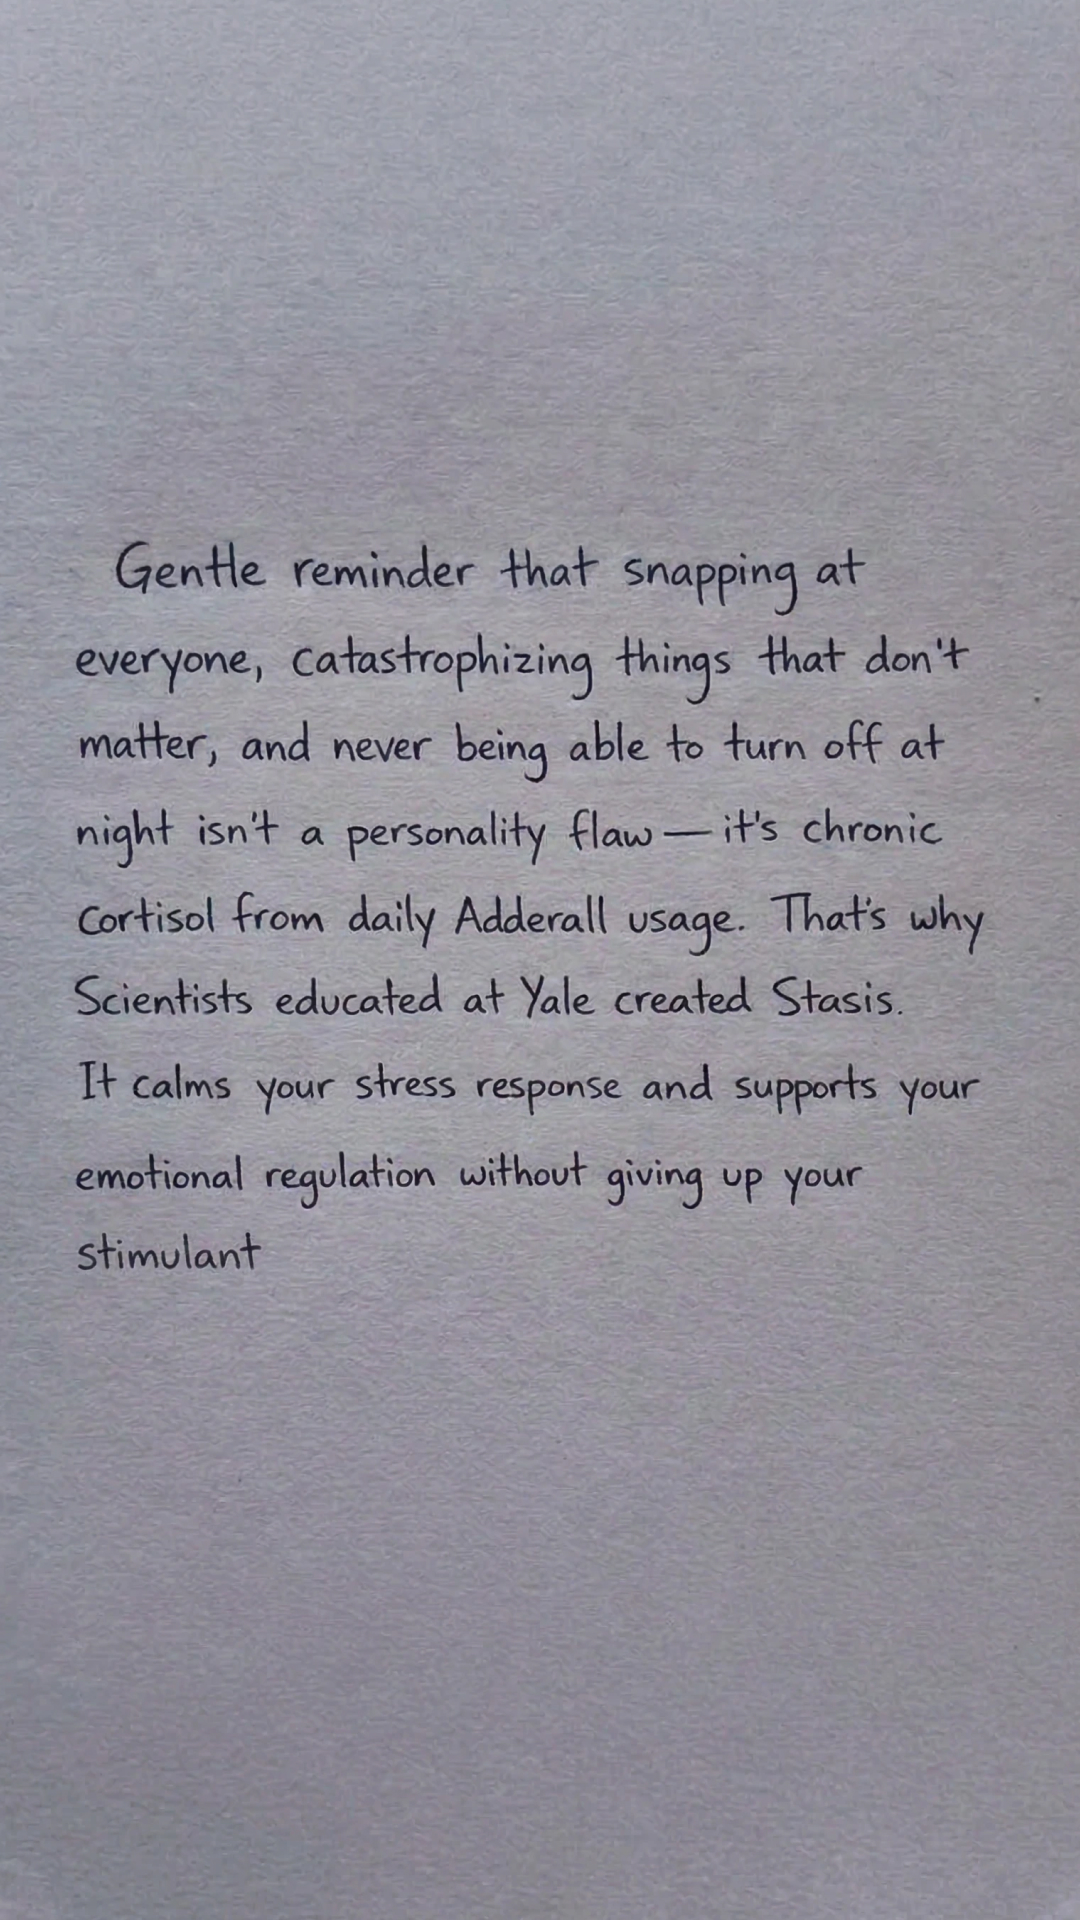 Gentle reminder that snapping at
everyone, catastrophizing things that don't
matter, and never being able to turn off at
night isn't a personality flaw — it's chronic
cortisol from daily Adderall usage. That's why
Scientists educated at Yale created Stasis.
It calms your stress response and supports your
emotional regulation without giving up your
stimulant